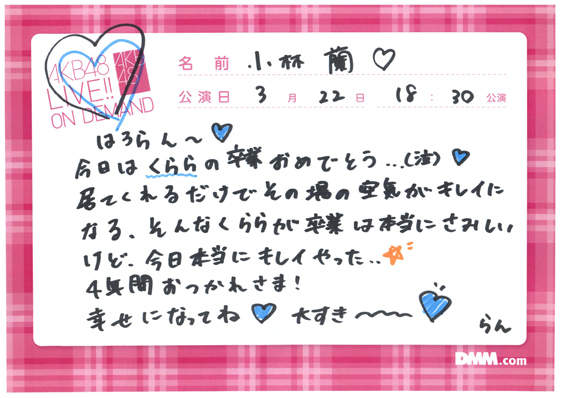 AKB48
LIVE!!
ON DEMAND
名前 小林 蘭 ♡
公演日 3月 22日 18:30 公演
はろらん〜
今日はくららの卒業おめでとう...(泣)
居てくれるだけでその場の空気がキレイに
なる、そんなくららが卒業は本当にさみしい
けど、今日本当にキレイやった..
4年間おつかれさま!
幸せになってね 大すき〜〜〜
らん
DMM.com